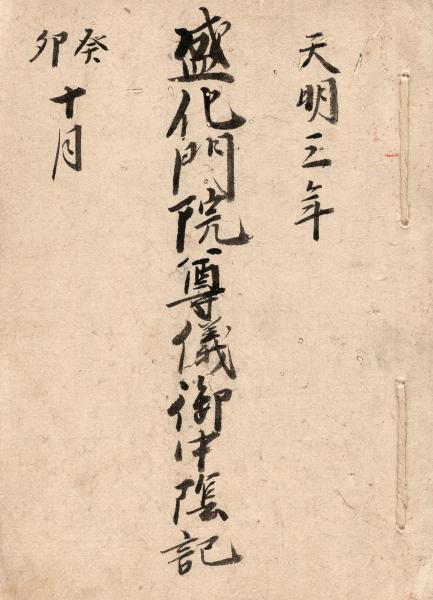 天明三年
盛化門院尊儀御中陰記
癸卯
十月